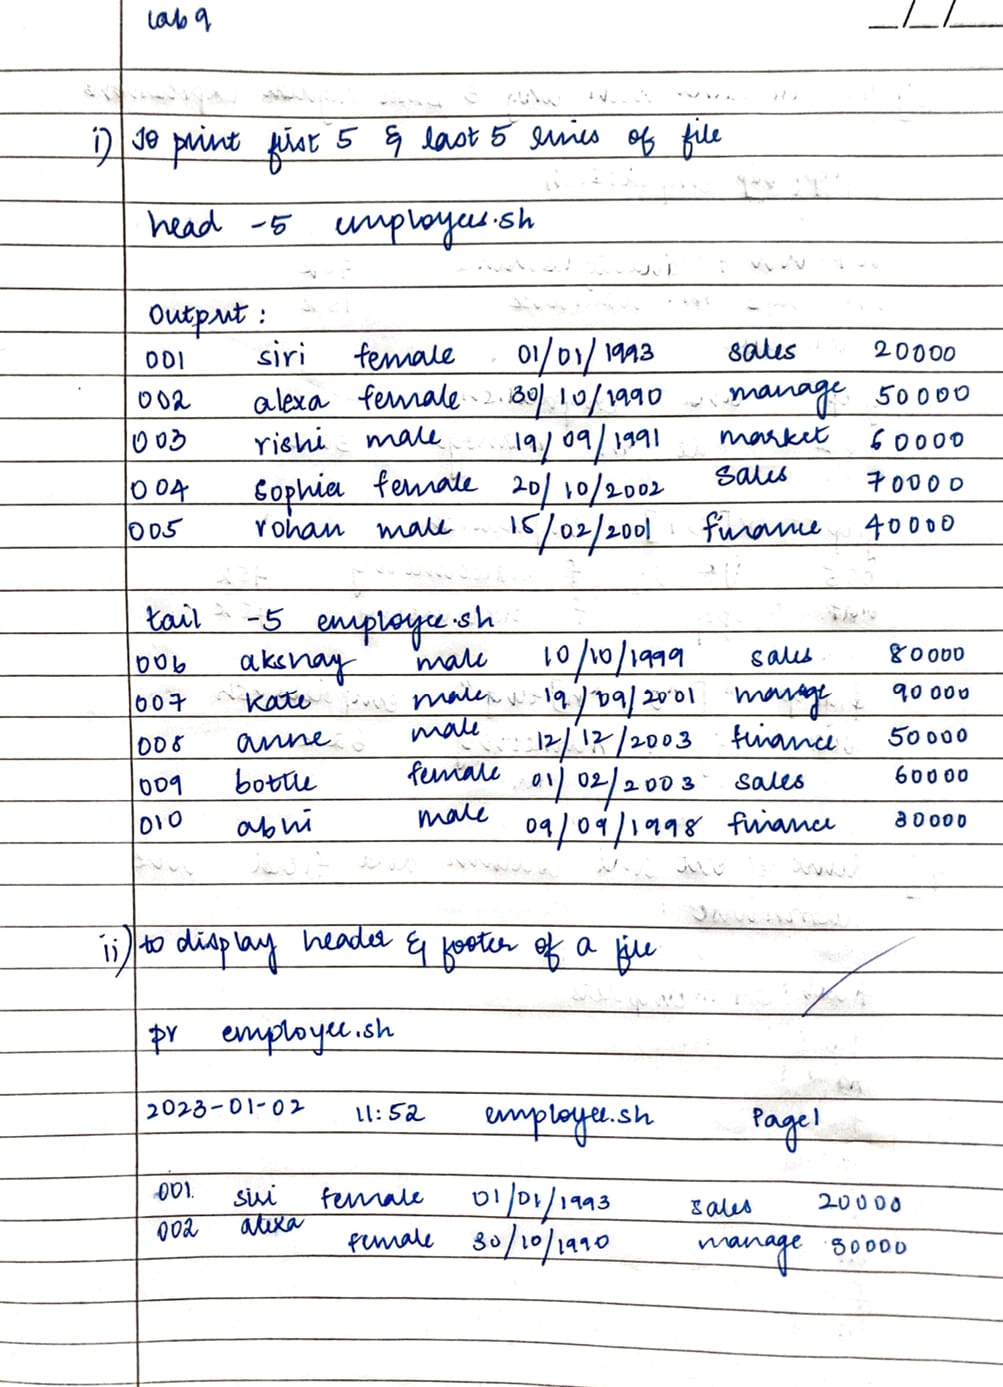 Lab 9
i) To print first 5 & last 5 lines of file
head -5 employee.sh
Output :
001 siri female 01/01/1993 sales 20000
002 alexa female 30/10/1990 manage 50000
003 rishi male 19/09/1991 market 60000
004 Sophia female 20/10/2002 Sales 70000
005 rohan male 15/02/2001 finance 40000
tail -5 employee.sh
006 akshay male 10/10/1999 sales 80000
007 kate male 19/09/2001 manage 90000
008 anne male 12/12/2003 finance 50000
009 bottle female 01/02/2003 sales 60000
010 abhi male 09/09/1998 finance 30000
ii) to display header & footer of a file
pr employee.sh
2023-01-02 11:52 employee.sh Page1
001. siri female 01/01/1993 sales 20000
002 alexa female 30/10/1990 manage 50000